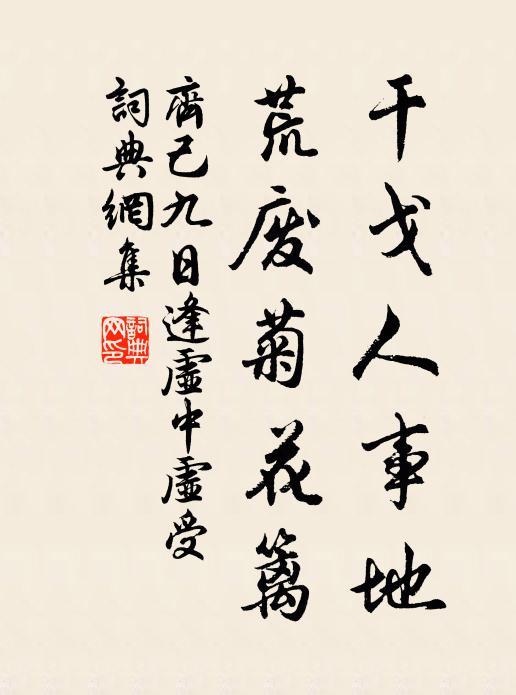 干戈人事地
荒废菊花篱
齊己九日逢虛中虛受
詞典網集
詞典
网印